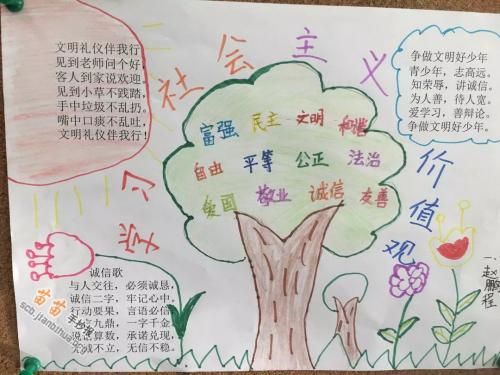 学习社会主义价值观
文明礼仪伴我行
见到老师问个好,
客人到家说欢迎,
见到小草不践踏,
手中垃圾不乱扔。
嘴中口痰不乱吐,
文明礼仪伴我行!
争做文明好少年
青少年，志高远。
知荣辱，讲诚信。
为人善，待人宽。
爱学习，善辩论。
争做文明好少年。
富强 民主 文明 和谐
自由 平等 公正 法治
爱国 敬业 诚信 友善
诚信歌
与人交往，必须诚恳，
诚信二字，牢记心中。
行动要果，言语必信，
一言九鼎，一字千金。
说话算数，承诺兑现，
失诚不立，无信不稳。
苗苗手抄报
scb.jianbihua
赵鹏程